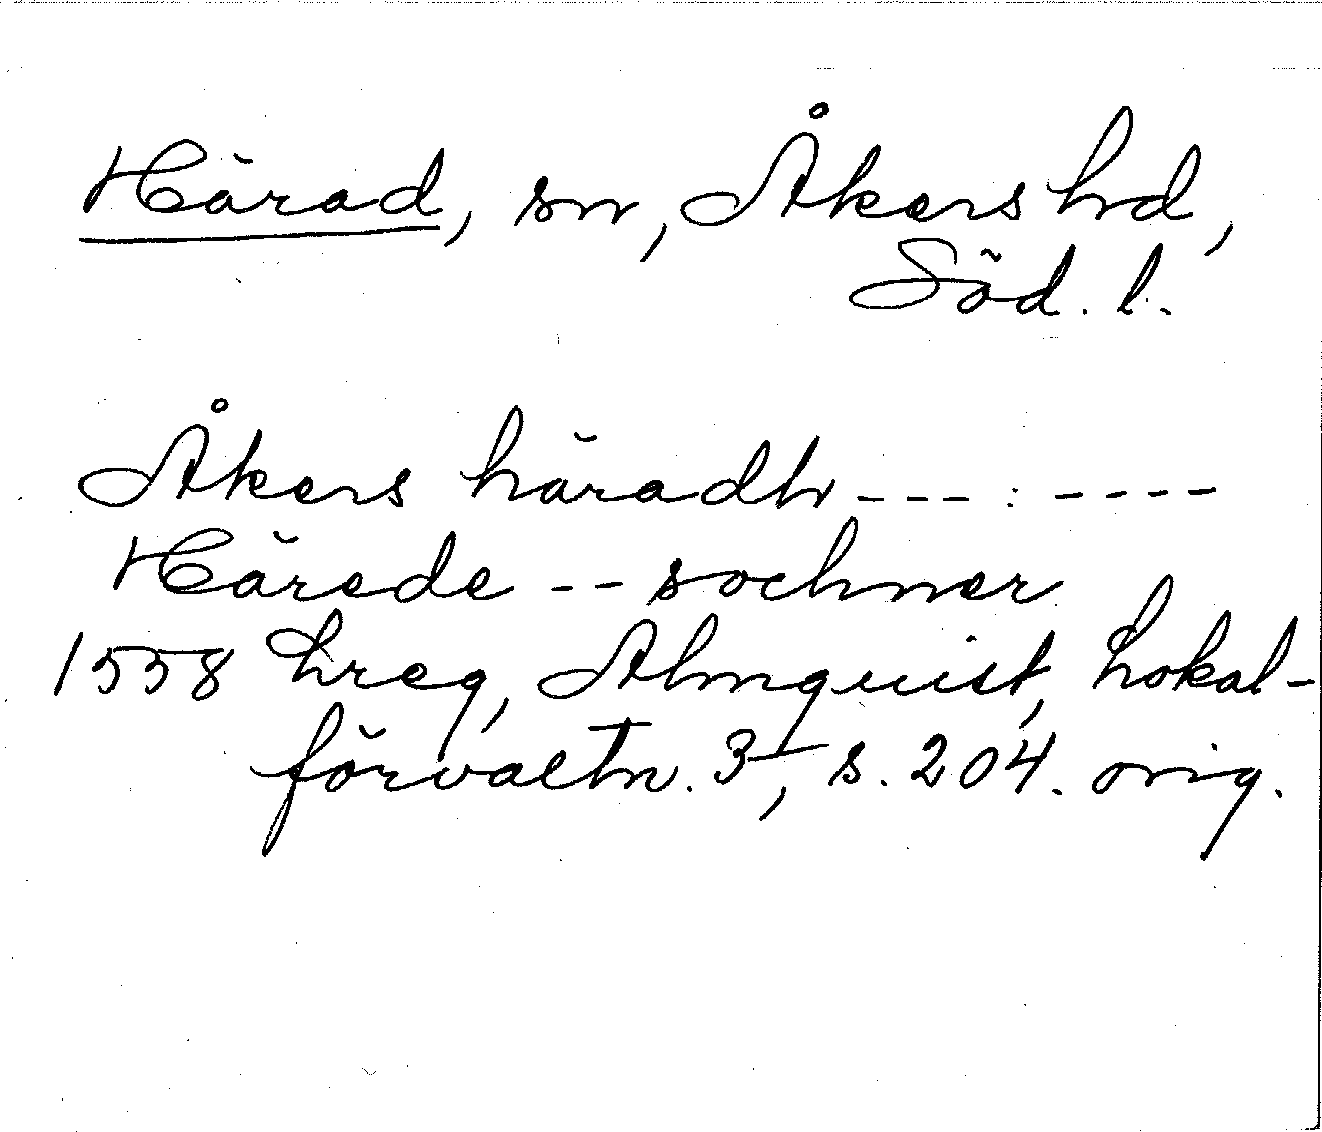 Härad, sn, Åkers hd,
Söd. l.
Åkers häradh --- : ----
Härede -- sochner
1558 Lreg, Almquist, Lokal-
förvaltn. 3, s. 204. orig.